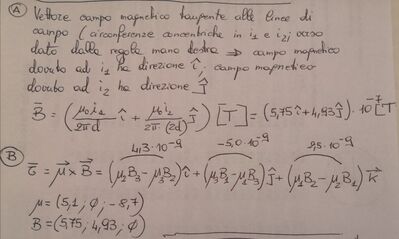 A Vettore campo magnetico tangente alle linee di
campo (circonferenze concentriche in i₁ e i₂; verso
dato dalla regola mano destra ⇒ campo magnetico
dovuto ad i₁ ha direzione î; campo magnetico
dovuto ad i₂ ha direzione ĵ
B̄ = (μ₀i₁/2πd î + μ₀i₂/2π(2d) ĵ) [T] = (5,75 î + 4,93 ĵ)·10⁻⁷ [T
4,3·10⁻⁹ -5,0·10⁻⁹ 2,5·10⁻⁹
B τ̄ = μ⃗ × B⃗ = (μ₂B₃ - μ₃B₂) î + (μ₃B₁ - μ₁B₃) ĵ + (μ₁B₂ - μ₂B₁) k⃗
μ = (5,1 ; ø ; -8,7)
B = (5,75 ; 4,93 ; ø)